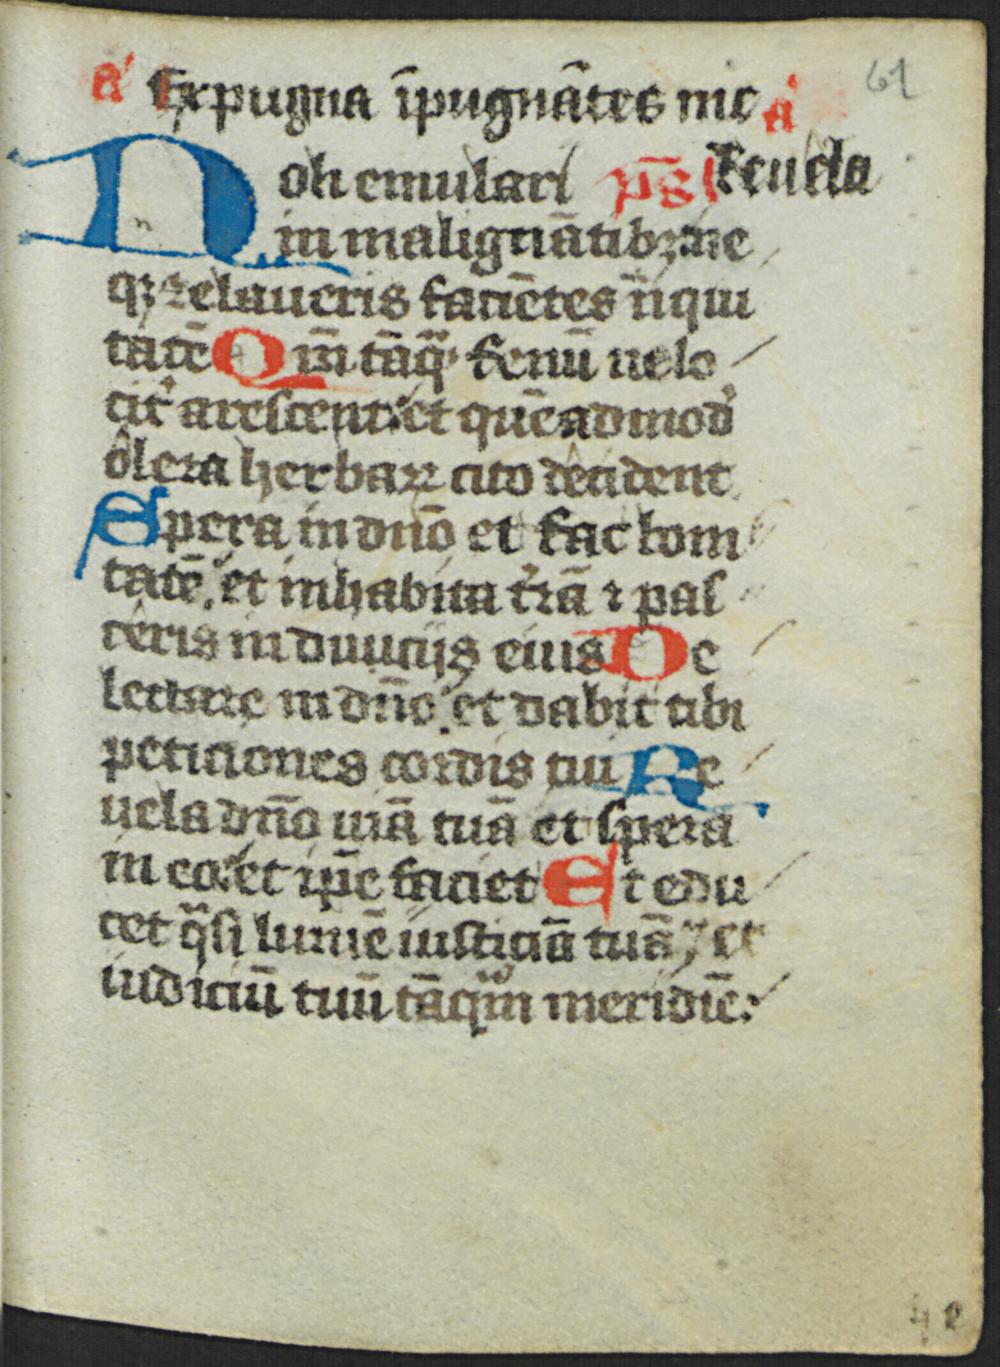 61
a' Expugna īpugnātes me a'
Noli emulari ps̄ Reuela
in malignātibꝫ ne
qꝫ zelaueris faciētes īiqui
tatē Qm̄ tāqᷓ fenū uelo
cit' arescent et quēadmod'
olera herbaꝝ cito decident
Spera in dn̄o et fac boni
tatē et inhabita t'rā ⁊ pas
ceris in diuicijs eius De
lectare in dn̄o et dabit tibi
peticiones cordis tui Re
uela dn̄o uiā tuā et spera
in eo et ip̄e faciet Et edu
cet qᷓsi lumē iusticiā tuā et
iudiciū tuū tāqᷓm meridiē: